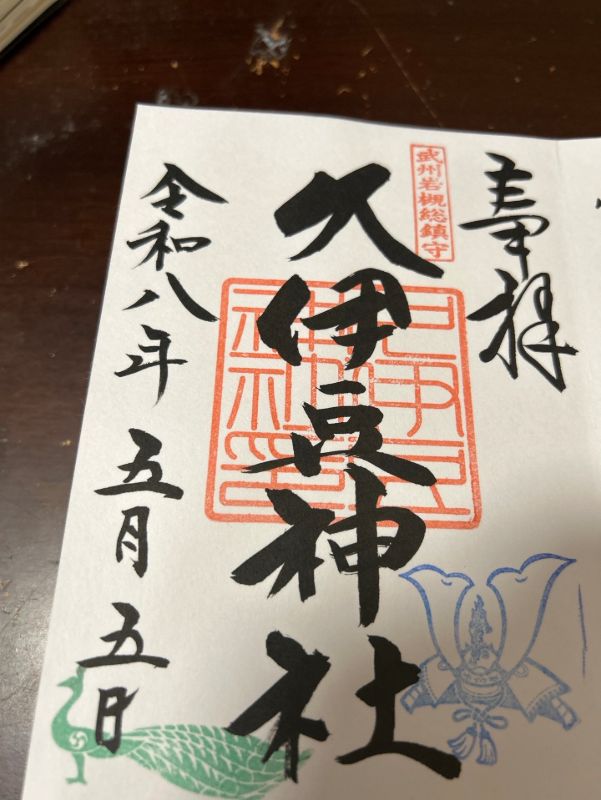 奉拝
武州岩槻総鎮守
久伊豆神社
令和八年 五月 五日